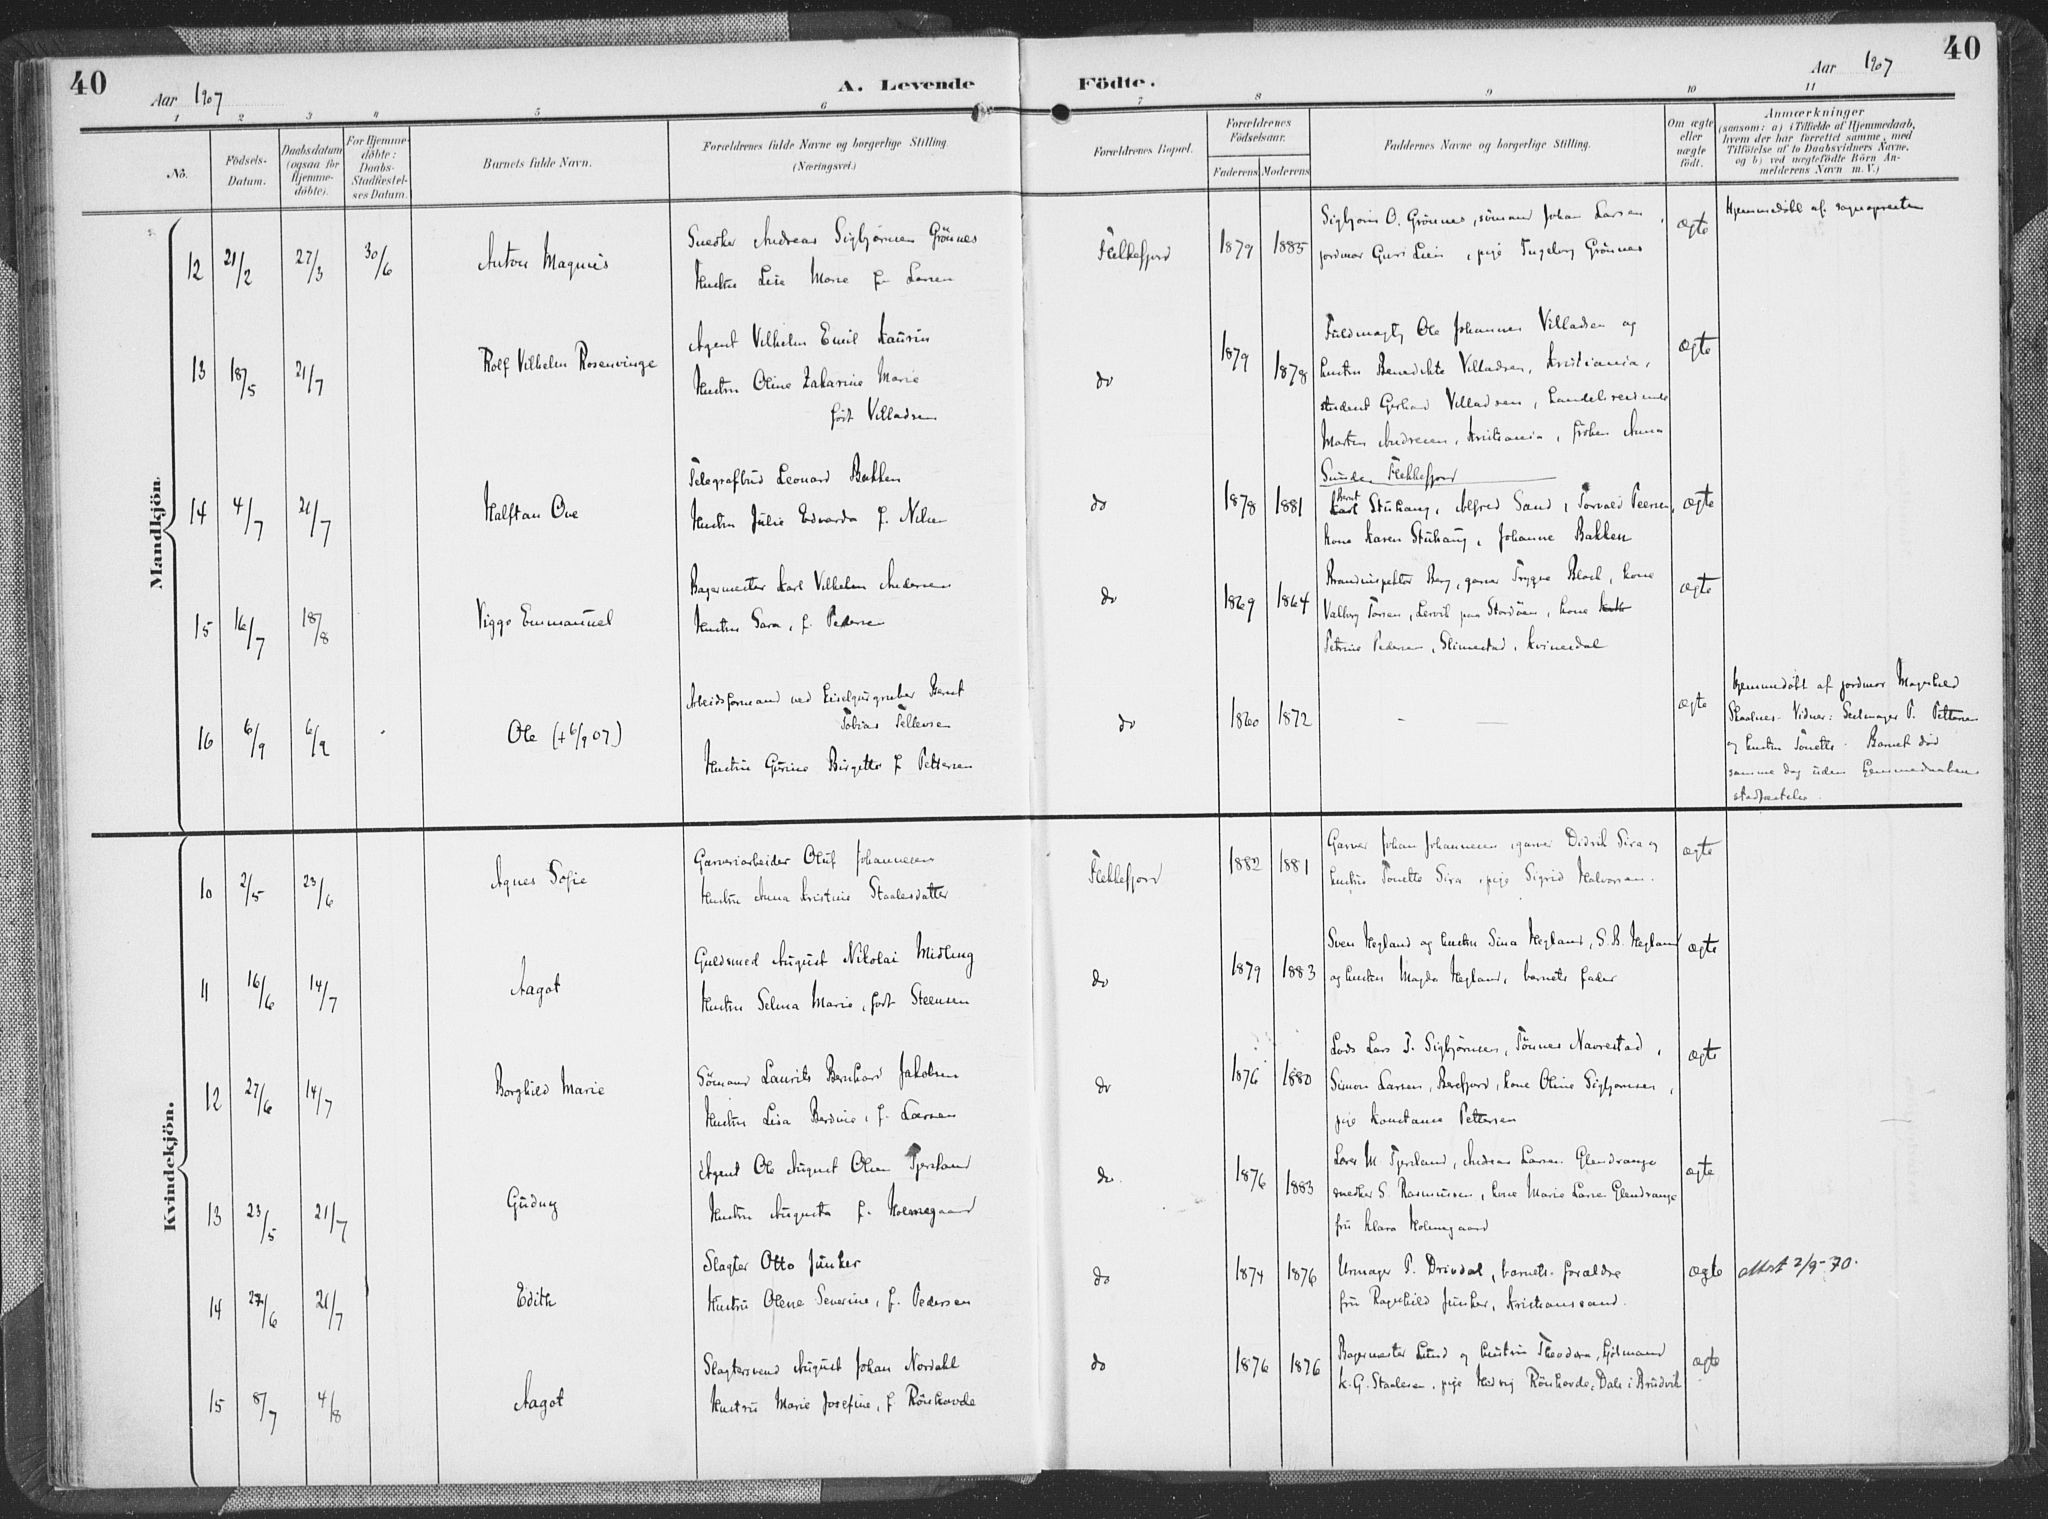 40
Aar 1907
A. Levende
Födte.
Aar 1907
40
1 2 3 4 5 6 7 8 9 10 11
No.
Födsels-Datum.
Daabsdatum (ogsaa for Hjemmedöbte).
For Hjemmedöbte: Daabs-Stadfæstelses Datum.
Barnets fulde Navn.
Forældrenes fulde Navne og borgerlige Stilling. (Næringsvei.)
Forældrenes Bopæl.
Forældrenes Födselsaar.
Faderens Moderens
Faddernes Navne og borgerlige Stilling.
Om ægte eller uægte födt.
Anmærkninger
(saasom: a) i Tilfælde af Hjemmedaab, hvem der har forrettet samme, med Tilföielse af to Daabsvidners Navne, og b) ved uægtefödte Börn Anmelderens Navn m. V.)
Mandkjön.
12 21/2 27/3 30/6 Anton Magnus
Snedker Andreas Sigbjørnsen Grönnes
Hustru Lise Marie f. Larsen
Flekkefjord 1879 1885
Sigbjørn O. Grönnes, sömand Johan Larsen,
jordmor Guri Lien, pige Ingeborg Grönnes
ægte
Hjemmedöbt af sognepresten
13 18/5 21/7 Rolf Vilhelm Rosenvinge
Agent Vilhelm Emil Kaurin
Hustru Oline Zakarine Marie
født Villadsen
do 1879 1878
Fuldmægtig Ole Johannes Villadsen og
hustru Benedikte Villadsen, Kristiania,
student Gerhard Villadsen, handelsreisende
Martin Andresen, Kristiania, frøken Anna
Sunde, Flekkefjord
ægte
14 4/7 21/7 Halftan Ove
Telegrafbud Leonard Bakken
Hustru Julie Edvarda f. Nilsen
do 1878 1881
Bernt Stuhaug, Alfred Sand, Torvald Peersen,
kone Karen Stuhaug, Johanne Bakken
ægte
15 16/7 18/8 Viggo Emmanuel
Bagermester Karl Vilhelm Andersen
Hustru Sara, f. Pedersen
do 1869 1864
Brandinspektør Berg, garver Trygve Block, kone
Valborg Torsen, Lervik paa Stordöen, kone
Petrine Pedersen, Slimestad, Kvinesdal
ægte
16 6/9 6/9 Ole (+ 6/9 07)
Arbeidsformand ved kiselgurgruber Bernt
Tobias Tellevsen
Hustru Gurine Birgitte f. Pettersen
do 1860 1872 - —
ægte
Hjemmedöbt af jordmor Magnhild
Skaalnes. Vidner: Seilmager P. Pettersen
og hustru Tonette. Barnet död
samme dag uden hjemmedaabens
stadfæstelse.
Kvindekjön.
10 2/5 23/6 Agnes Sofie
Garveriarbeider Oluf Johannesen
Hustru Anna Kristine Staalesdatter
Flekkefjord 1882 1881
Garver Johan Johannesen, garver Didrik Sira og
hustru Tonette Sira, pige Sigrid Halvorsen.
ægte
11 16/6 14/7 Aagot
Guldsmed August Nikolai Midling
Hustru Selma Marie, født Steensen
do 1879 1883
Sven Hegland og hustru Sina Hegland, S. B. Hegland
og hustru Magda Hegland, barnets fader
ægte
12 27/6 14/7 Borghild Marie
Sömand Laurits Bernhard Jakobsen
Hustru Lisa Berdine, f. Larsen
do 1876 1880
Lods Lars T. Sigbjörnsen, Tönnes Navrestad,
Simon Larsen, Berefjord, kone Oline Sigbjörnsen,
pige Konstanse Pettersen
ægte
13 23/5 21/7 Gudny
Agent Ole August Olsen Tjersland
Hustru Augusta f. Holmegaard
do 1876 1883
Lærer M. Tjersland, Andreas Larsen Glendrange
snedker S. Rasmussen, kone Marie Larsen Glendrange
fru Klara Holmegaard
ægte
14 27/6 21/7 Edith
Slagter Otto Junker
Hustru Olene Severine, f. Pedersen
do 1874 1876
Urmager P. Drivdal, barnets forældre
fru Ragnhild Junker, Kristianssand.
ægte Attest 2/9-70.
15 8/7 4/8 Aagot
Slagtersvend August Johan Nordahl
Hustru Marie Josefine, f. Rönhovde
do 1876 1876
Bagermester Lund og hustru Theodora,
K. G. Staalesen, pige Hedvig Rönhovde, Dale i Brudvik
ægte